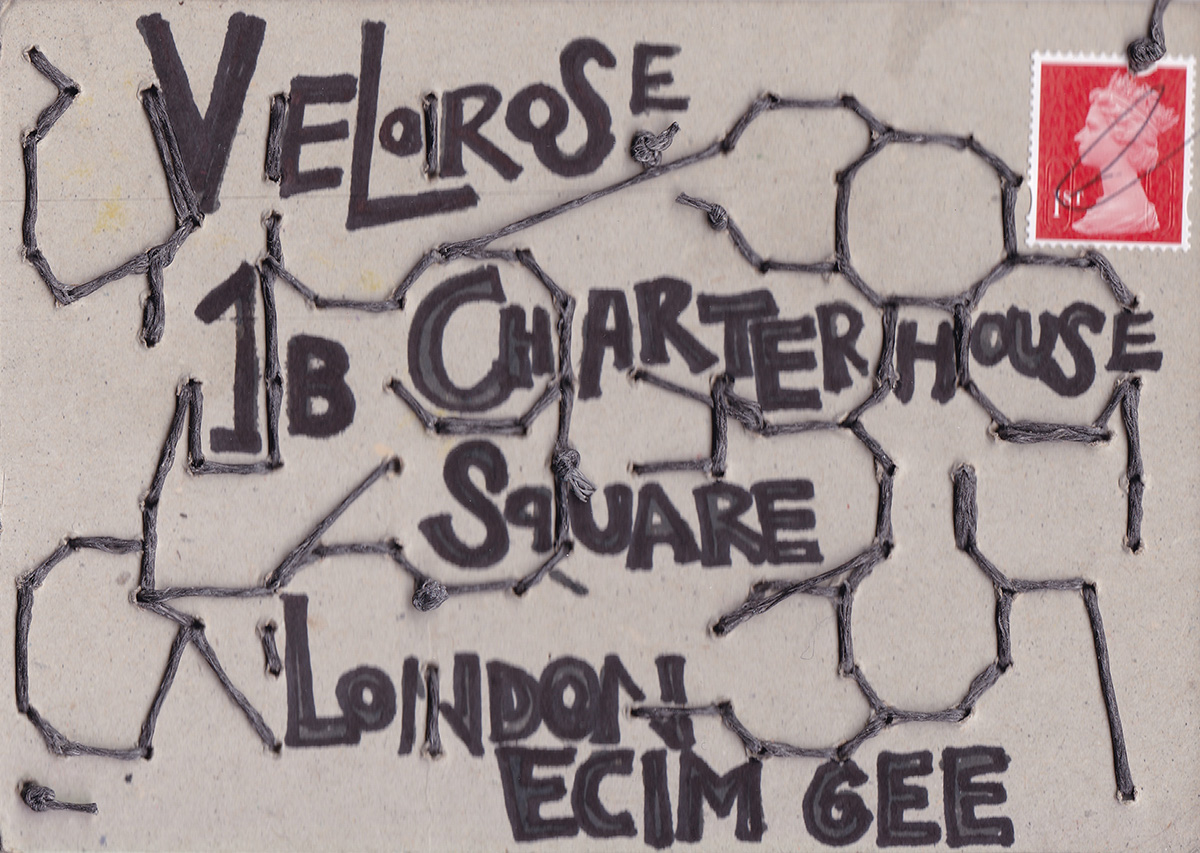 VELOROSE
1B CHARTERHOUSE
SQUARE
LONDON
EC1M 6EE
1ST